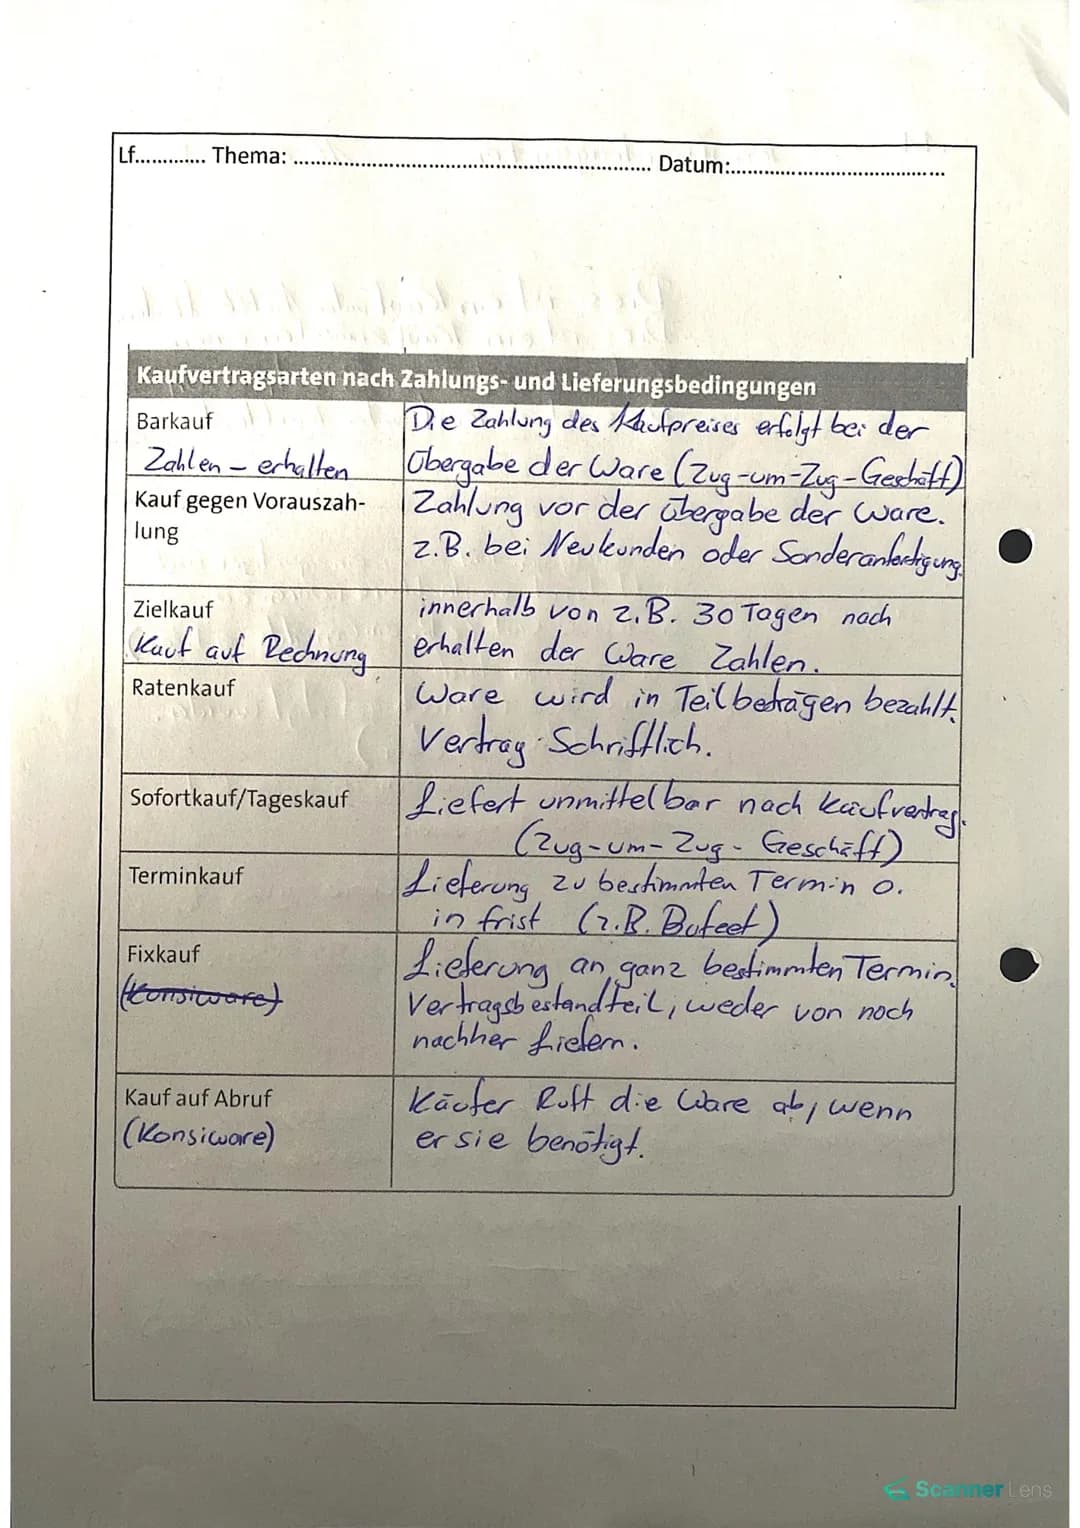 Lf............. Thema: .................................................................. Datum:.......................................
Kaufvertragsarten nach Zahlungs- und Lieferungsbedingungen
Barkauf
Zahlen – erhalten
Die Zahlung des Kaufpreises erfolgt bei der
Übergabe der Ware (Zug-um-Zug-Geschäft)
Kauf gegen Vorauszah-
lung
Zahlung vor der Übergabe der Ware.
z.B. bei Neukunden oder Sonderanfertigung.
Zielkauf
Kauf auf Rechnung
innerhalb von z.B. 30 Tagen nach
erhalten der Ware Zahlen.
Ratenkauf
Ware wird in Teilbeträgen bezahlt.
Vertrag Schriftlich.
Sofortkauf/Tageskauf
Liefert unmittelbar nach Kaufvertrag.
(Zug-um-Zug-Geschäft)
Terminkauf
Lieferung zu bestimmten Termin o.
in frist (z.B. Bufeet)
Fixkauf
(Konsiware)
Lieferung an ganz bestimmten Termin.
Vertragsbestandteil, weder von noch
nachher Liefern.
Kauf auf Abruf
(Konsiware)
Käufer Ruft die Ware ab, wenn
er sie benötigt.
Scanner Lens